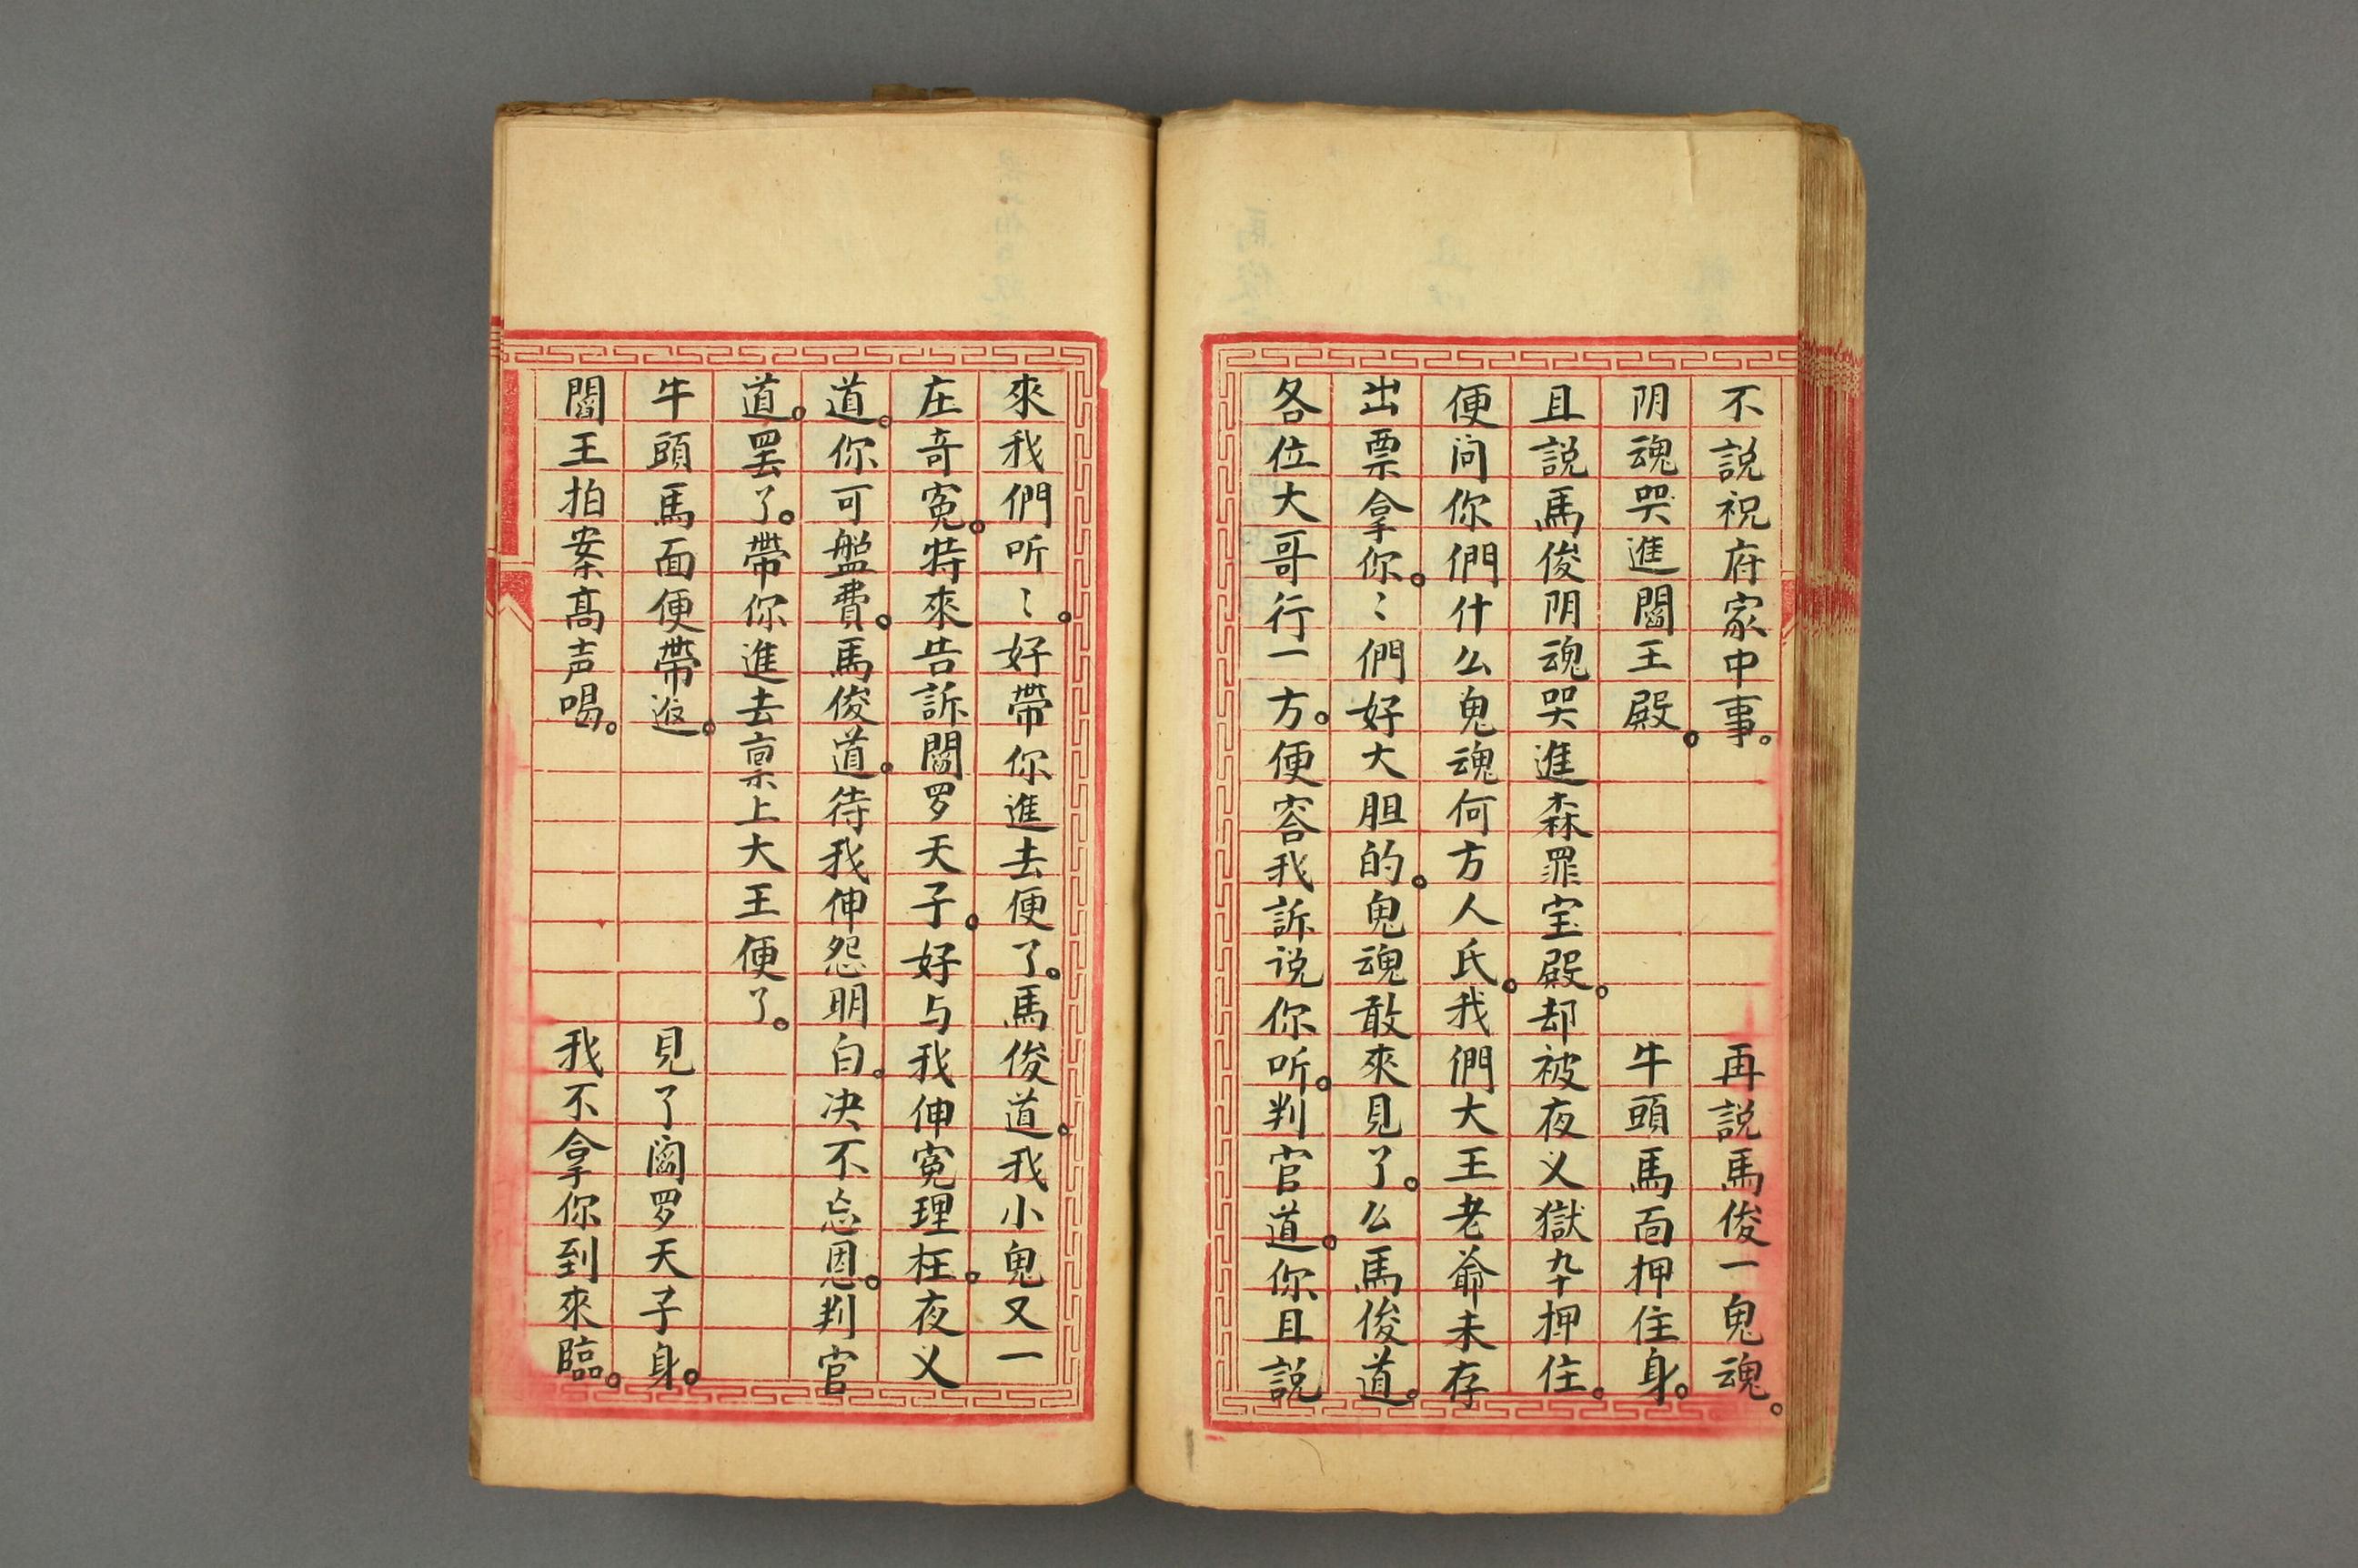 不說祝府家中事。 再説馬俊一鬼魂。
阴魂哭進閻王殿。 牛頭馬面押住身。
且説馬俊阴魂哭進森罪宝殿。却被夜义獄卆押住。
便问你們什么鬼魂何方人氏。我們大王老爺未存
出票拿你。〻們好大胆的。鬼魂敢來見了。么馬俊道。
各位大哥行一方。便容我訴说你听。判官道。你且説
來我們听〻。好帶你進去便了。馬俊道。我小鬼又一
庄奇寃。特來告訴閻罗天子。好与我伸寃理枉。夜义
道。你可盤費。馬俊道。待我伸怨明白。决不忘恩。判官
道。罢了。帶你進去禀上大王便了。
牛頭馬面便帶返。 見了閻罗天子身。
閻王拍案高声喝。 我不拿你到來臨。